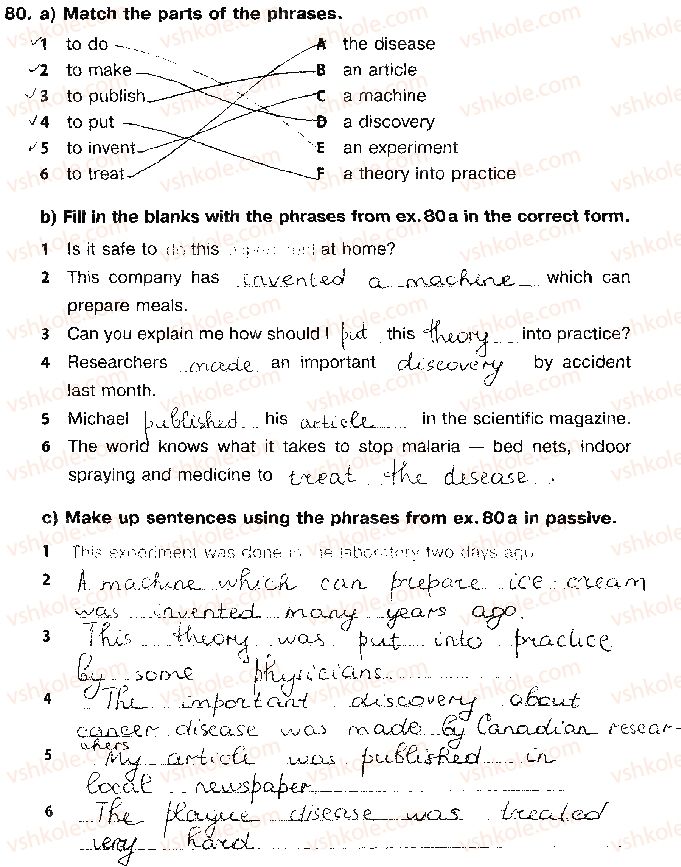 80. a) Match the parts of the phrases.
✓1 to do A the disease
✓2 to make B an article
✓3 to publish C a machine
✓4 to put D a discovery
✓5 to invent E an experiment
6 to treat F a theory into practice
b) Fill in the blanks with the phrases from ex. 80 a in the correct form.
1 Is it safe to do this experiment at home?
2 This company has invented a machine which can
prepare meals.
3 Can you explain me how should I put this theory into practice?
4 Researchers made an important discovery by accident
last month.
5 Michael published his article in the scientific magazine.
6 The world knows what it takes to stop malaria — bed nets, indoor
spraying and medicine to treat the disease.
c) Make up sentences using the phrases from ex. 80 a in passive.
1 This experiment was done in the laboratory two days ago
2 A machine which can prepare ice cream
was invented many years ago.
3 This theory was put into practice
by some physicians
4 The important discovery about
cancer disease was made by Canadian resear-
chers
5 My article was published in
local newspaper
6 The plague disease was treated
very hard
vshkole.com